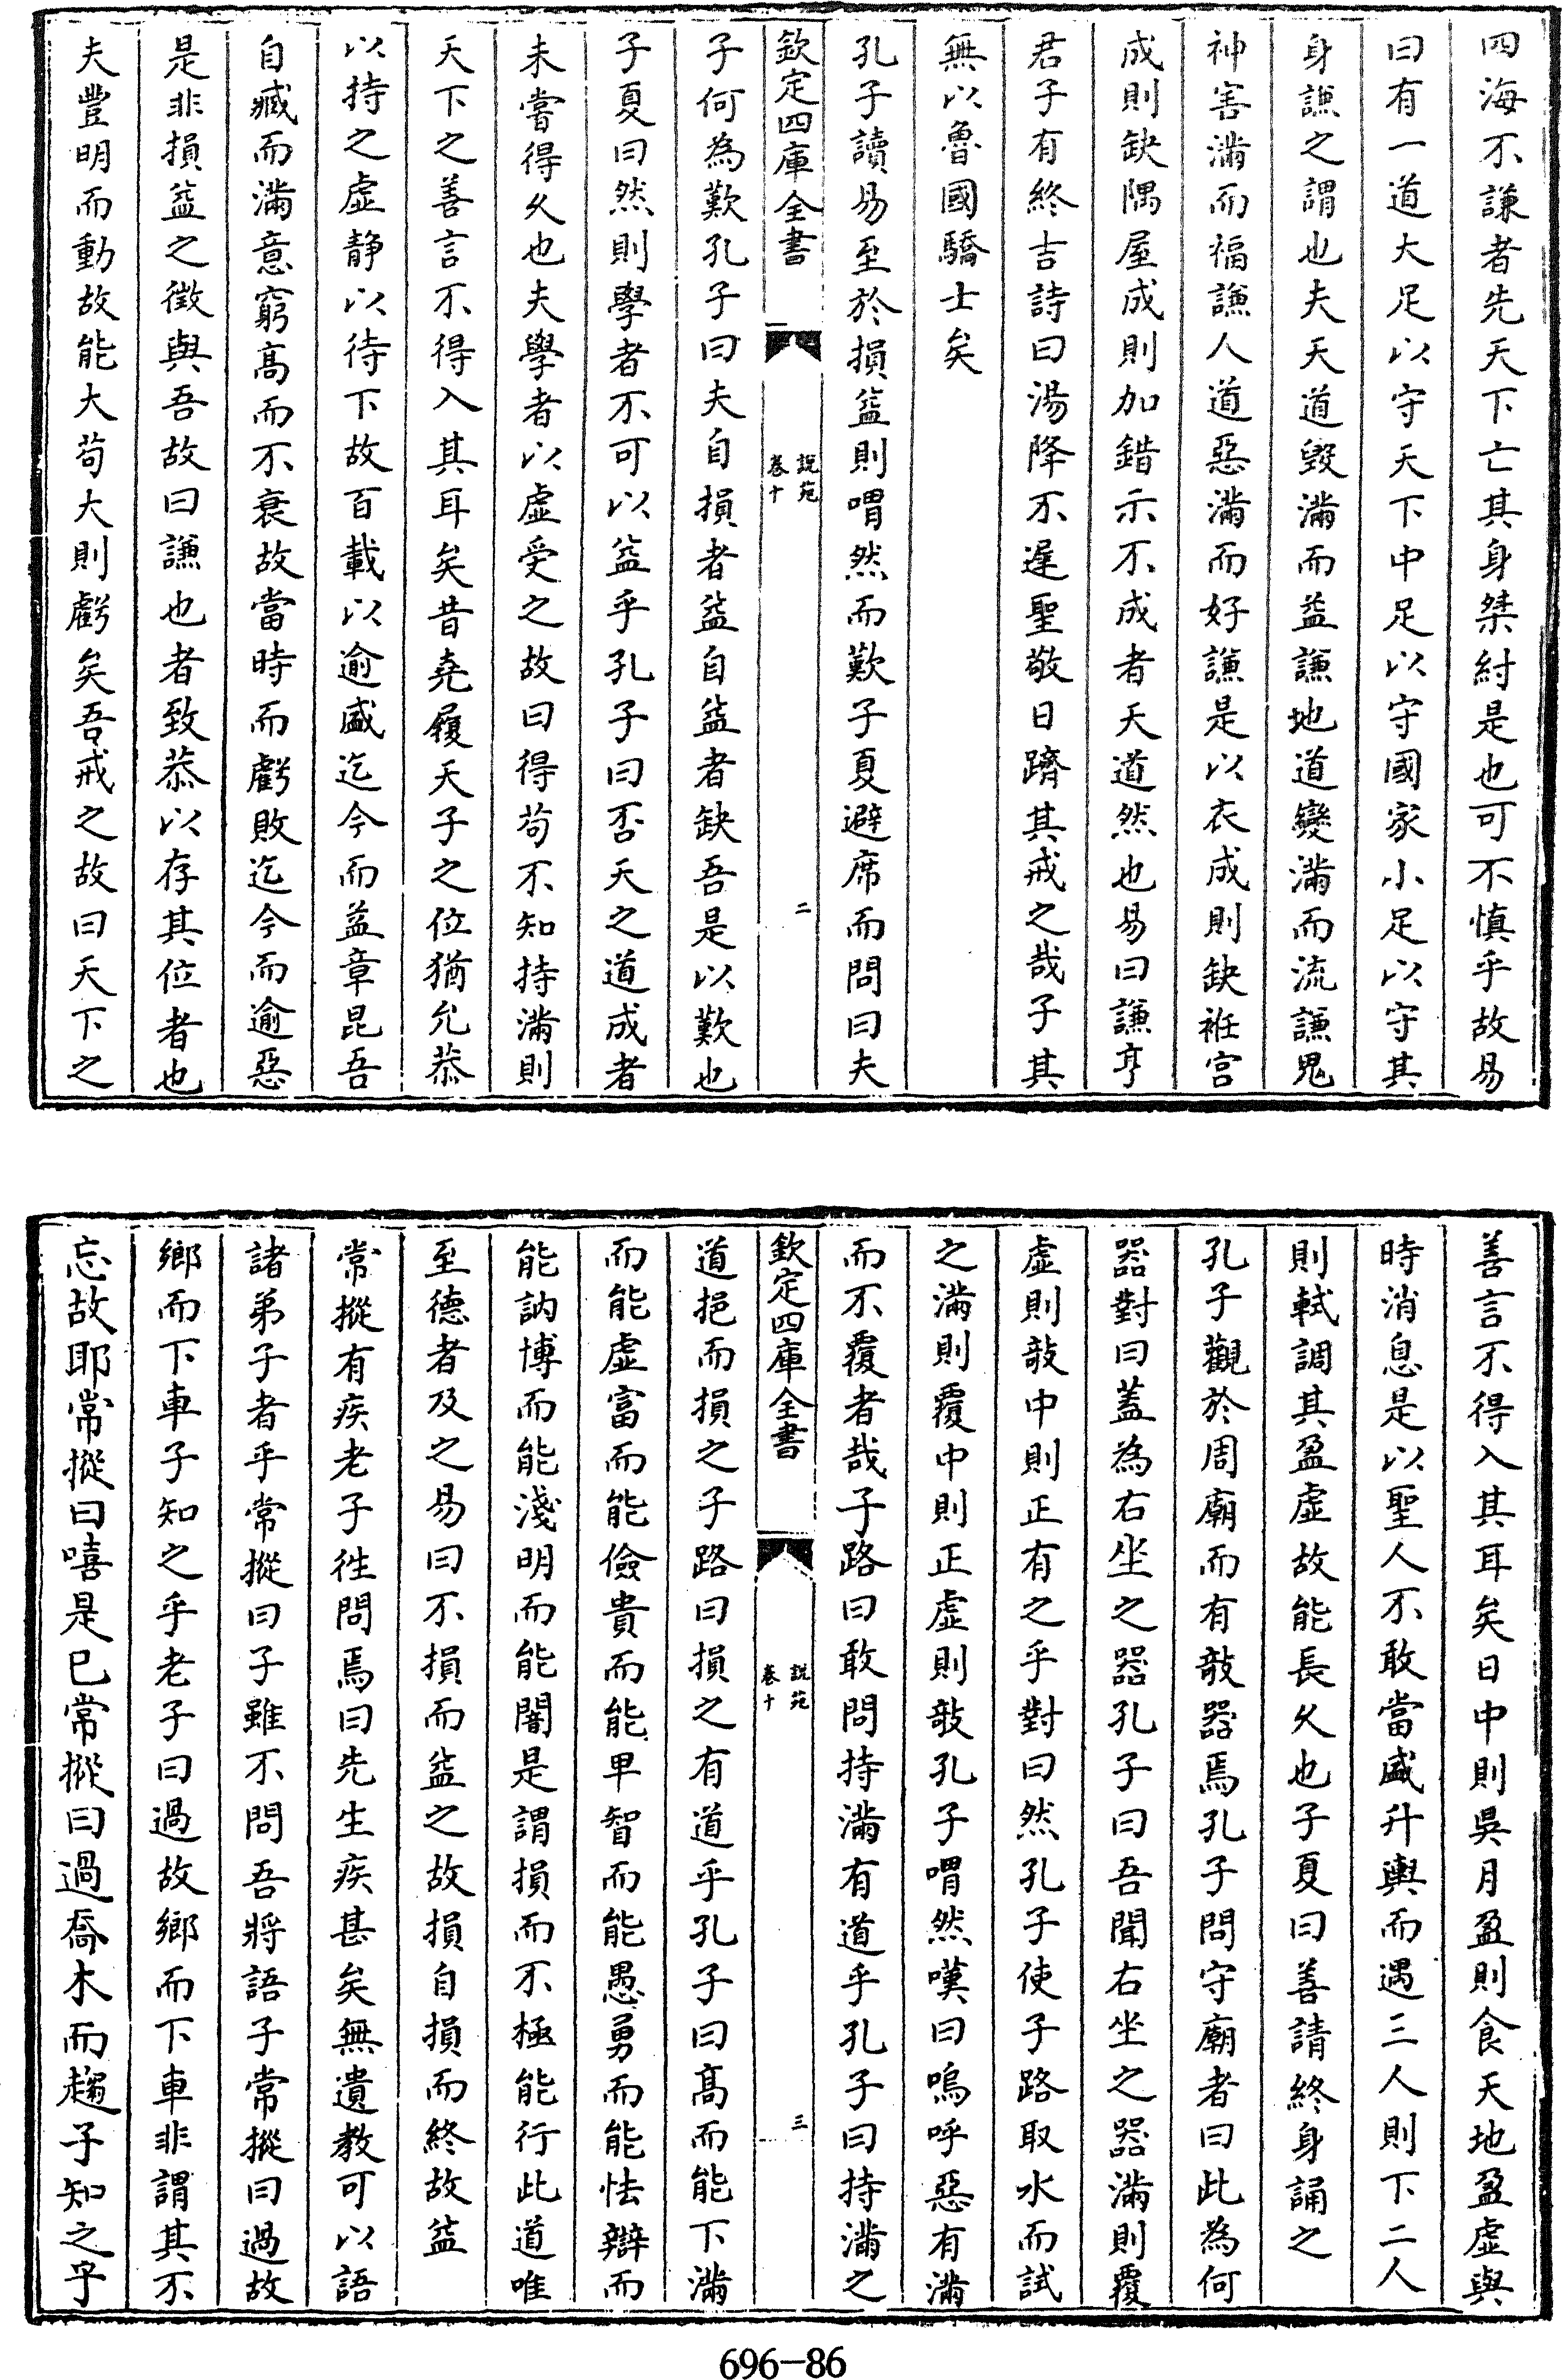 四海不謙者先天下亡其身桀紂是也可不慎乎故易
曰有一道大足以守天下中足以守國家小足以守其
身謙之謂也夫天道毁滿而益謙地道變滿而流謙鬼
神害滿而福謙人道惡滿而好謙是以衣成則缺袵宫
成則缺隅屋成則加錯示不成者天道然也易曰謙亨
君子有終吉詩曰湯降不遲聖敬日躋其戒之哉子其
無以魯國驕士矣
孔子讀易至於損益則喟然而歎子夏避席而問曰夫
欽定四庫全書
說苑
卷十
二
子何為歎孔子曰夫自損者益自益者缺吾是以歎也
子夏曰然則學者不可以益乎孔子曰否天之道成者
未嘗得久也夫學者以虚受之故曰得苟不知持滿則
天下之善言不得入其耳矣昔堯履天子之位猶允恭
以持之虚静以待下故百載以逾盛迄今而益章昆吾
自臧而滿意窮髙而不衰故當時而虧敗迄今而逾惡
是非損益之徴與吾故曰謙也者致恭以存其位者也
夫豐明而動故能大苟大則虧矣吾戒之故曰天下之
善言不得入其耳矣日中則昃月盈則食天地盈虚與
時消息是以聖人不敢當盛升輿而遇三人則下二人
則軾調其盈虚故能長久也子夏曰善請終身誦之
孔子觀於周廟而有敧器焉孔子問守廟者曰此為何
器對曰蓋為右坐之器孔子曰吾聞右坐之器滿則覆
虚則敧中則正有之乎對曰然孔子使子路取水而試
之滿則覆中則正虚則敧孔子喟然嘆曰嗚呼惡有滿
而不覆者哉子路曰敢問持滿有道乎孔子曰持滿之
欽定四庫全書
說苑
卷十
三
道挹而損之子路曰損之有道乎孔子曰髙而能下滿
而能虚富而能儉貴而能卑智而能愚勇而能怯辯而
能訥博而能淺明而能闇是謂損而不極能行此道唯
至德者及之易曰不損而益之故損自損而終故益
常摐有疾老子往問焉曰先生疾甚矣無遺教可以語
諸弟子者乎常摐曰子雖不問吾將語子常摐曰過故
鄉而下車子知之乎老子曰過故鄉而下車非謂其不
忘故耶常摐曰嘻是已常摐曰過喬木而趨子知之乎
696-86